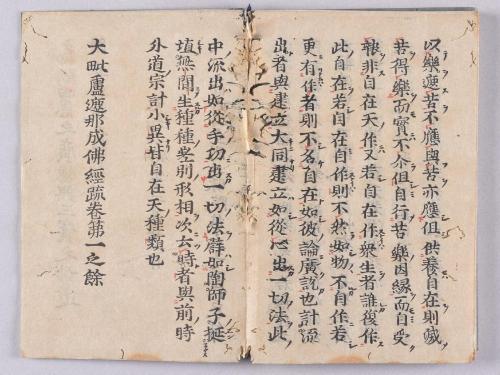 以樂遮苦不應與苦亦應但供養自在則滅
苦得樂而實不尒但自行苦樂因緣而自受
報非自在天作又若自在作衆生者誰復作
此自在若自在自作則不然如物不自作若
更有作者則不名自在如彼論廣說也計流
出者與建立大同建立如從心出一切法此
中流出如從手功出一切法譬如陶師子埏
埴無間生種種差別形相次云時者與前時
外道宗計小異甘自在天種類也
大毗盧遮那成佛經疏卷第一之餘